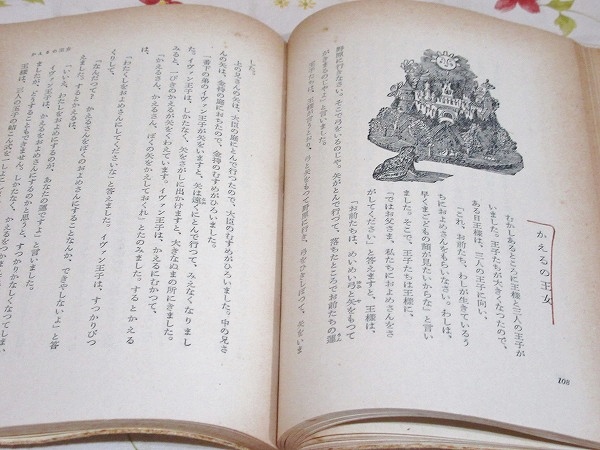 かえるの王女
むかしあるところに王様と三人の王子が
いました。王子たちが大きくなつたので、
ある日王様は、三人の王子に向い、
「これ、お前たち、わしが生きているう
ちにおよめさんをもらいなさい。わしは、
早くまごどもの顔が見たいからな」と言い
ました。そこで、王子たちは王様に、
「ではお父さま、私たちにおよめさんをさ
がしてください」と答えますと、王様は、
「お前たちは、めいめい弓と矢をもつて
野原に行きなさい。そこで矢をいるのじや。矢がとんで行つて、落ちたところでお前たちの運
がきまるのじやよ」と言いました。
王子たちは、王様におじぎし
108
かえるの王女
した。
上の兄さんの矢は、大臣の庭にとんで行つたので、大臣のむすめがひろいました。中の兄さ
んの矢は、金持の庭におちたので、金持のむすめがひろいました。
一番下の弟のイヴァン王子が矢をいますと、矢は遠くにとんで行つて、みえなくなりまし
た。イヴァン王子は、しかたなく、矢をさがしに出かけますと、大きなぬまの所にきました。
みると、一ぴきのかえるが矢をくわえています。イヴァン王子は、かえるにむかつて、
「かえるさん、かえるさん、ぼくの矢をかえしておくれ」とたのみました。するとかえる
は、
「わたくしをおよめさんにしてくださいな」と答えました。イヴァン王子は、すつかりびつ
くりして、
「なんだつて！ かえるさんをぼくのおよめさんにすることなんか、できやしないよ」と答
えました。するとかえるは、
「いいえ、わたしをおよめにするのが、あなたの運ですよ」と言いました。
イヴァン王子は、かえるをおよめにするのかと思うと、すつかりかなしくなつてしまい
ましたが、どうすることもできません。しかたなく、かえるをつかま
王様は、三人の王子の結こん式を